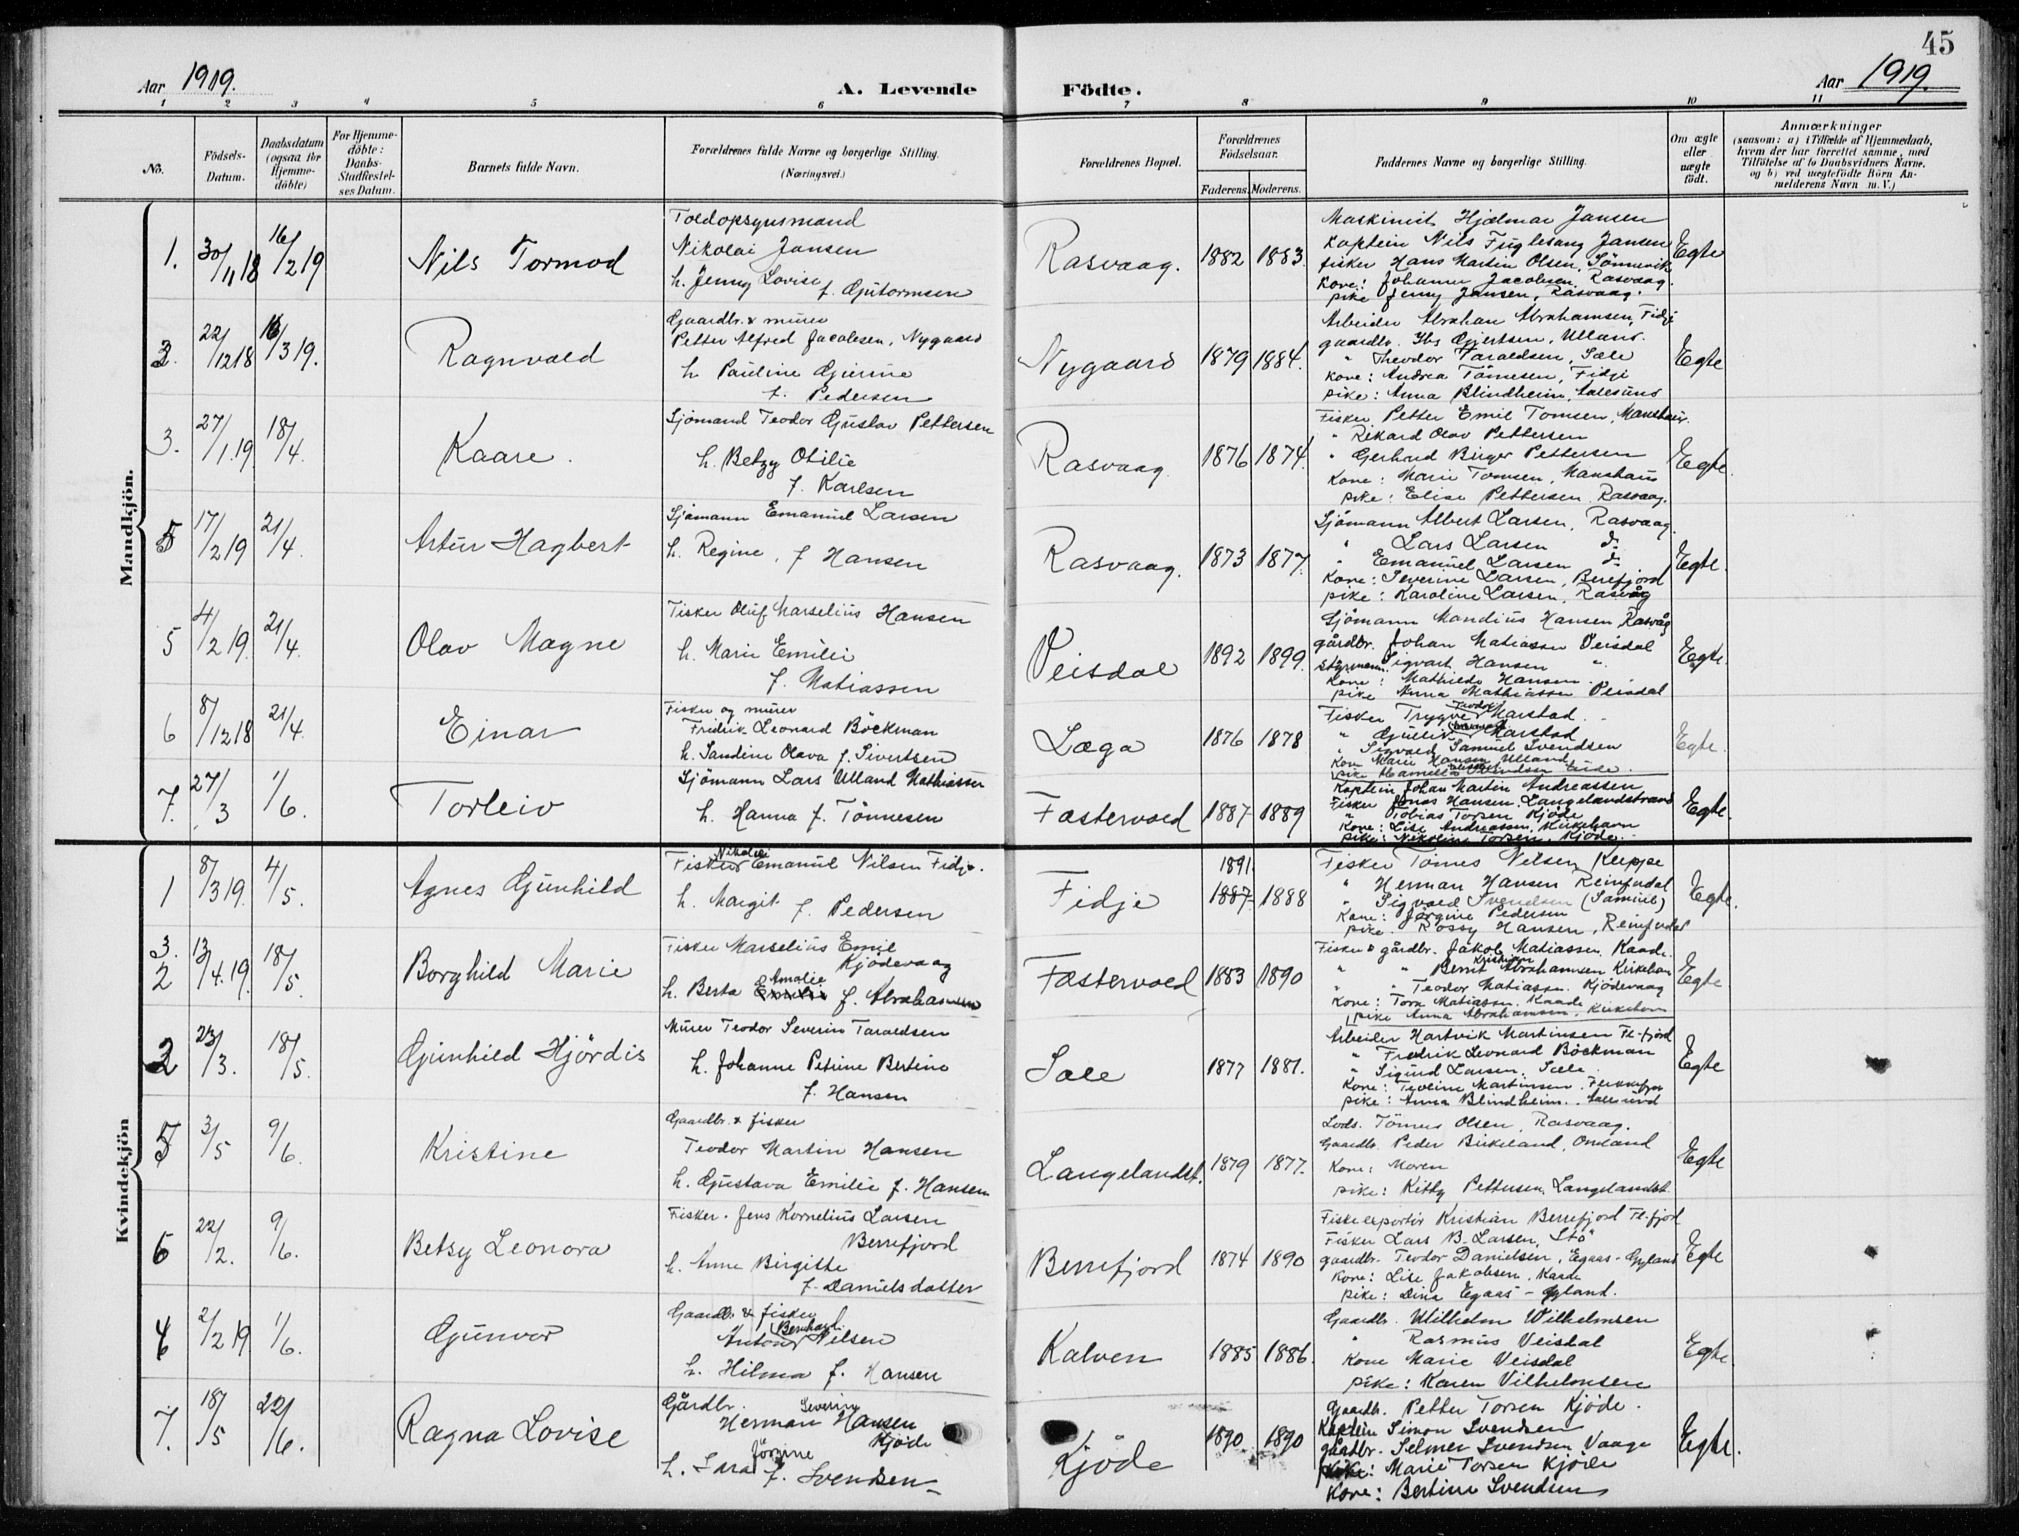 45
Aar 1919.
A. Levende Födte.
Aar 1919.
1 2 3 4 5 6 7 8 9 10 11
No.
Födsels-
Datum.
Daabsdatum
(ogsaa for
Hjemme-
döbte)
For Hjemme-
döbte:
Daabs-
Stadfæstel-
ses Datum.
Barnets fulde Navn.
Forældrenes fulde Navne og borgerlige Stilling.
(Næringsvei.)
Forældrenes Bopæl.
Forældrenes
Födselsaar.
Faderens. Moderens.
Faddernes Navne og borgerlige Stilling.
Om ægte
eller
uægte
födt.
Anmærkninger
(saasom: a) i Tilfælde af Hjemmedaab,
hvem der har forrettet samme, med
Tilföielse af to Daabsvidners Navne,
og b) ved uægtefödte Börn An-
melderens Navn m. V.)
Mandkjön.
1. 30/11 18 16/2 19 Nils Tormod
Toldopsynsmand
Nikolai Jansen
h. Jenny Lovise
f. Gutormsen
Rasvaag. 1882 1883.
Maskinist Hjalmar Jansen
Kaptein Nils Fuglesang Jansen
fisker Hans Martin Olsen, Sönnervik
Kone: Johanne Jacobsen, Rasvaag.
pike Jenny Jansen, Rasvaag.
Egte
2. 22/12 18 16/3 19. Ragnvald
Gaardbr. & murer
Petter Alfred Jacobsen, Nygaard
h. Pauline Gurine
f. Pedersen
Nygaard 1879 1884.
Arbeider Abraham Abrahamsen, Fidje
gaardbr. Gjertsen, Ulland.
" Theodor Taraldsen, Sæle
Kone: Andrea Tönnesen, Fidje
pike: Anna Blindheim, Aalesund
Egte
3. 27/1.19. 18/4. Kaare.
Sjömand Teodor Gustav Pettersen
h. Betzy Otilie
f. Karlsen
Rasvaag 1876 1874.
Fisker Petter Emil Tomsen,
" Rikard Olav Pettersen
" Gerhard Birger Pettersen
Kone: Marie Tomsen,
pike: Elise Pettersen, Rasvaag.
Egte.
5 17/2 19 21/4. Artur Hagbert
Sjömann Emanuel Larsen
h. Regine, f Hansen
Rasvaag. 1873 1877.
Sjömann Albert Larsen, Rasvaag
" Lars Larsen d.
" Emanuel Larsen d.
Kone: Severine Larsen, Berefjord
pike: Karoline Larsen, Rasvåg
Egte.
5 4/2 19. 21/4. Olav Magne
Fisker Oluf Marselius Hansen
h. Marie Emilie
f. Matiassen
Veisdal 1892 1899.
Sjömann Mandius Hansen Rasvåg
gårdbr. Johan Matiassen Veisdal
styrmann Sigvart Hansen "
Kone: Mathilde Hansen
pike Anna Mathiassen Veisdal
Egte.
6 8/12 18 21/4. Einar
Fisker og murer
Fridrik Leonard Böckman
h. Sandine Olava f. Sivertsen
Læga 1876 1878
Fisker Trygve Teodor Marstad.
" Marstad
" Sigvald Samuel Svendsen
Kone Marie Hansen Ulland
Egte.
7. 27/3 1/6. Torleiv
Sjömann Lars Ulland Mathiassen
h. Hanna f. Tönnesen
Fastervold 1887 1889
Kaptein Johan Martin Andreassen
Fisker Jonas Hansen Langelandstrand
" Tobias Torsen Kjöde
Kone: Lise Andreassen, Kirkehavn
pike: Nikoline Torsen, Kjöde.
Egte.
Kvindekjön
1 8/3 19. 4/5. Agnes Gunhild
Fisker Nikolai Emanuel Nilsen Fidje.
h. Margit f. Pedersen
Fidje 1891. 1887 1888
Fisker Tömes Nilsen, Kuppe
" Herman Hansen Reinfudal
" Sigvald Svendsen (Samuel)
Kone: Jörgine Pedersen
pike. Rossy Hansen, Reinfudal
Egte.
3. 2 13/4. 19. 18/5. Borghild Marie
Fisker Marselius Emil
Kjödevaag
h. Berta Amalie f. Abrahamsen
Fastervold 1883 1890
Fisker & gårdbr. Jakob Matiassen, Kaade.
" " Bernt Kristian Abrahamsen Kirkehavn
" Teodor Matiassen. Kjödevaag
Kone: Tora Matiassen. Kaade
pike Anna Abrahamsen, Kirkehavn
Egte
2 23/3. 18/5. Gunhild Hjördis
Murer Teodor Severin Taraldsen
h. Johanne Petrine Bertine
f. Hansen
Sæle 1877 1881.
Arbeider Hartvik Martinsen Fl-fjord
" Fredrik Leonard Böckman
" Sigurd Larsen. Sæle.
Kone: Teoline Martinsen.
pike: Anna Blindheim. Aalesund
Egte
5 3/5 9/6. Kristine
Gaardbr. & fisker
Teodor Martin Hansen
h. Gustava Emilie f. Hansen
Langelandst. 1879 1877.
Lods. Tömes Olsen, Rasvaag.
Gaardbr. Peder Birkeland, Omland
Kone: Maren
pike: Kitty Pettersen, Langelandst.
Egte
6 22/2. 9/6. Betsy Leonora
Fisker. Jens Kornelius Larsen
Berrefjord
h. Anne Birgitte
f. Danielsdatter
Berrefjord 1874 1890
Fiskeexportör Kristian Berrefjord Fl-fjord
Fisker Lars B. Larsen, Stö
gaardbr. Teodor Danielsen, Egaas - Gyland
Kone: Lise Jakobsen, Kaade
pike: Dina Egaas - Gyland.
Egte
4 2/2 19 1/6. Gunvor
Gaardbr. & fisker
Anton Bernhard Nilsen
h. Hilma f. Hansen
Kalven 1885 1886.
Gaardbr. Wilhelm Wilhelmsen
" Rasmus Veisdal
Kone Marie Veisdal
pike: Karen Vilhelmsen
Egte.
7. 18/5 22/6. Ragna Lovise
Gårdbr.
Herman Severin Hansen
Kjöde
h. Sara Jörgine f. Svendsen
Kjöde 1890 1890
Gaardb. Petter Torsen Kjöde.
Kaptein Simon Svendsen
gårdbr. Selmer Svendsen, Vaage
pike: Marie Torsen Kjöde
Kone: Bertine Svendsen
Egte.